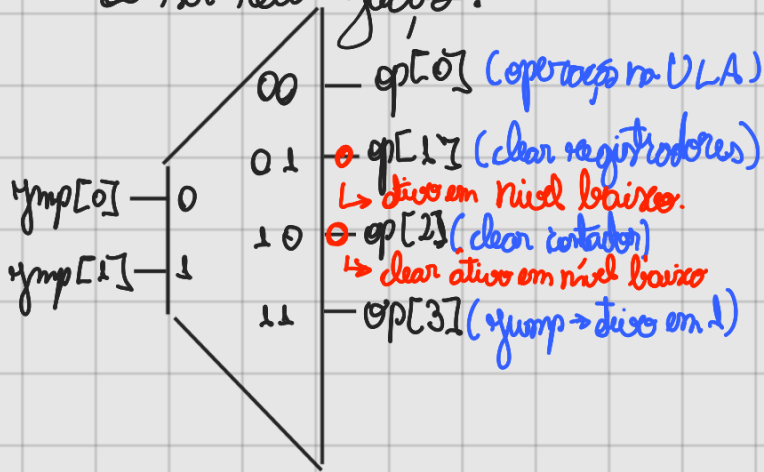 00 op[0] (operação na ULA)
01 op[1] (clear registradores)
jmp[0] 0 ↳ ativo em nível baixo.
10 op[2] (clear contador)
jmp[1] 1 ↳ clear ativo em nível baixo
11 op[3] (jump → ativo em 1)